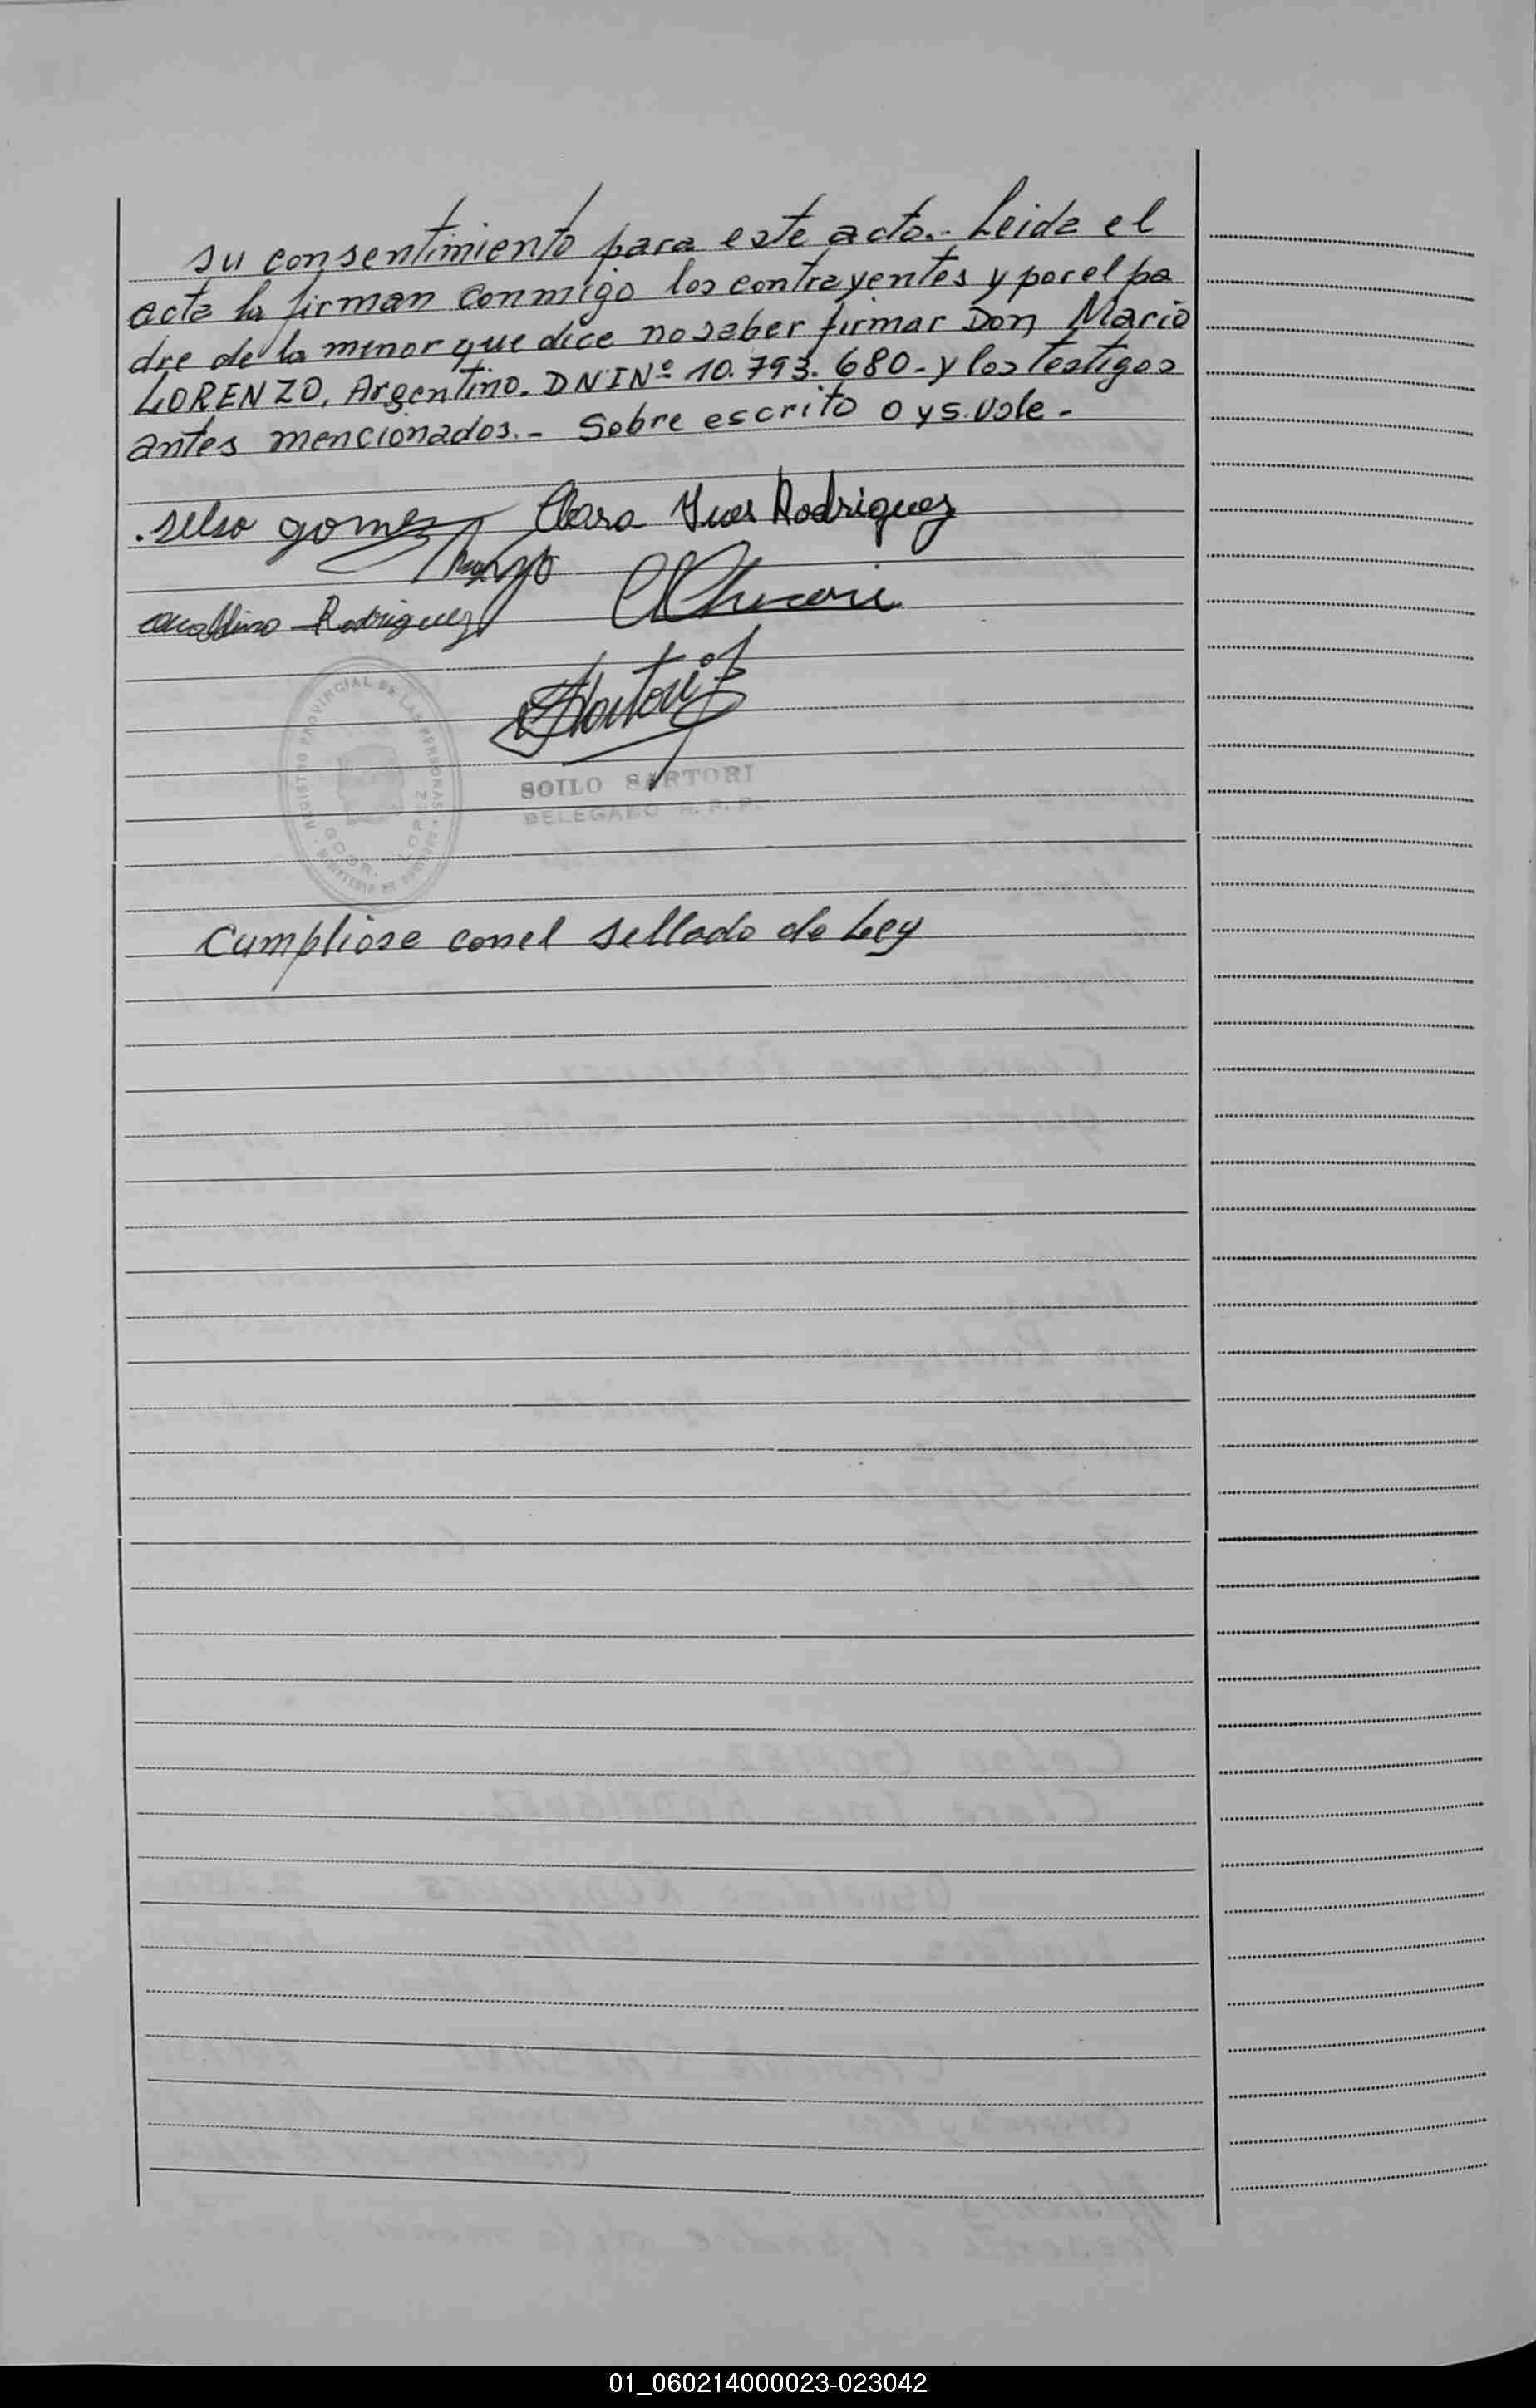 su consentimiento para este acto.- Leida el
acta la firman conmigo los contrayentes y por el pa
dre de la menor que dice no saber firmar Don Mario
LORENZO, Argentino. DNI Nº 10.793.680.- y los testigos
antes mencionados.- Sobre escrito o y s. Vale.-
selso gomez Clara Ines Rodriguez
Rodriguez
SOILO SARTORI
DELEGADO R. P. P.
REGISTRO PROVINCIAL DE LAS PERSONAS
Cumpliose con el sellado de Ley
01_060214000023-023042